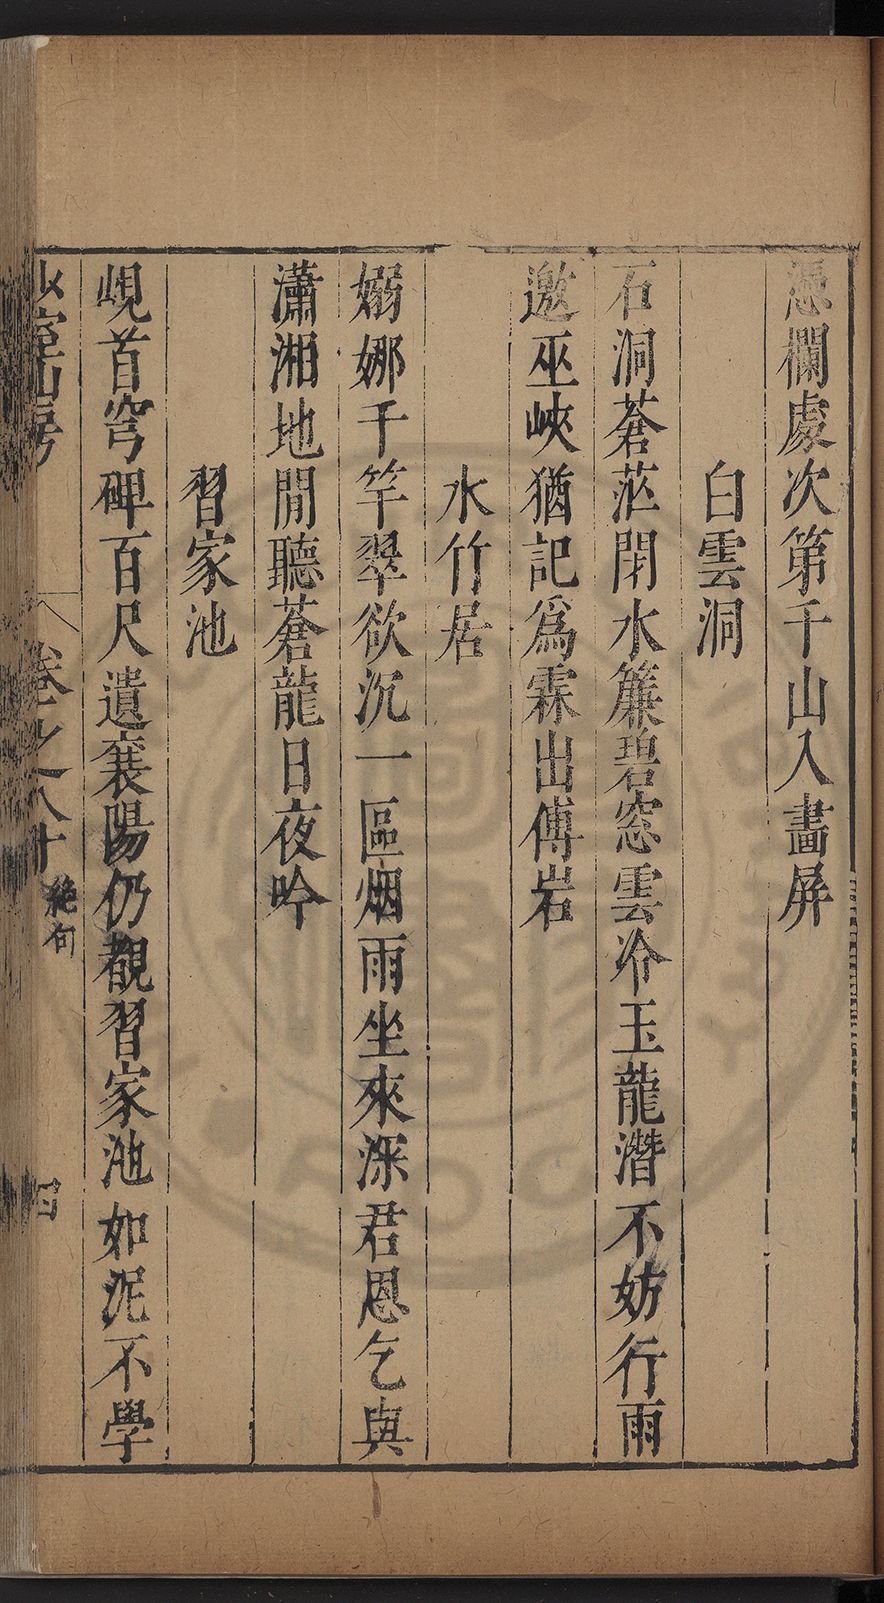 憑欄處次第千山入畵屏
白雲洞
石洞蒼茫閉水簾碧窓雲冷玉龍潛不妨行雨
邀巫峽猶記爲霖出傅岩
水竹居
嫋娜千竿翠欲沉一區烟雨坐來深君恩乞與
瀟湘地閒聽蒼龍日夜吟
習家池
峴首穹碑百尺遺襄陽仍覩習家池如泥不學
少室山房
卷之八十
絶句
四